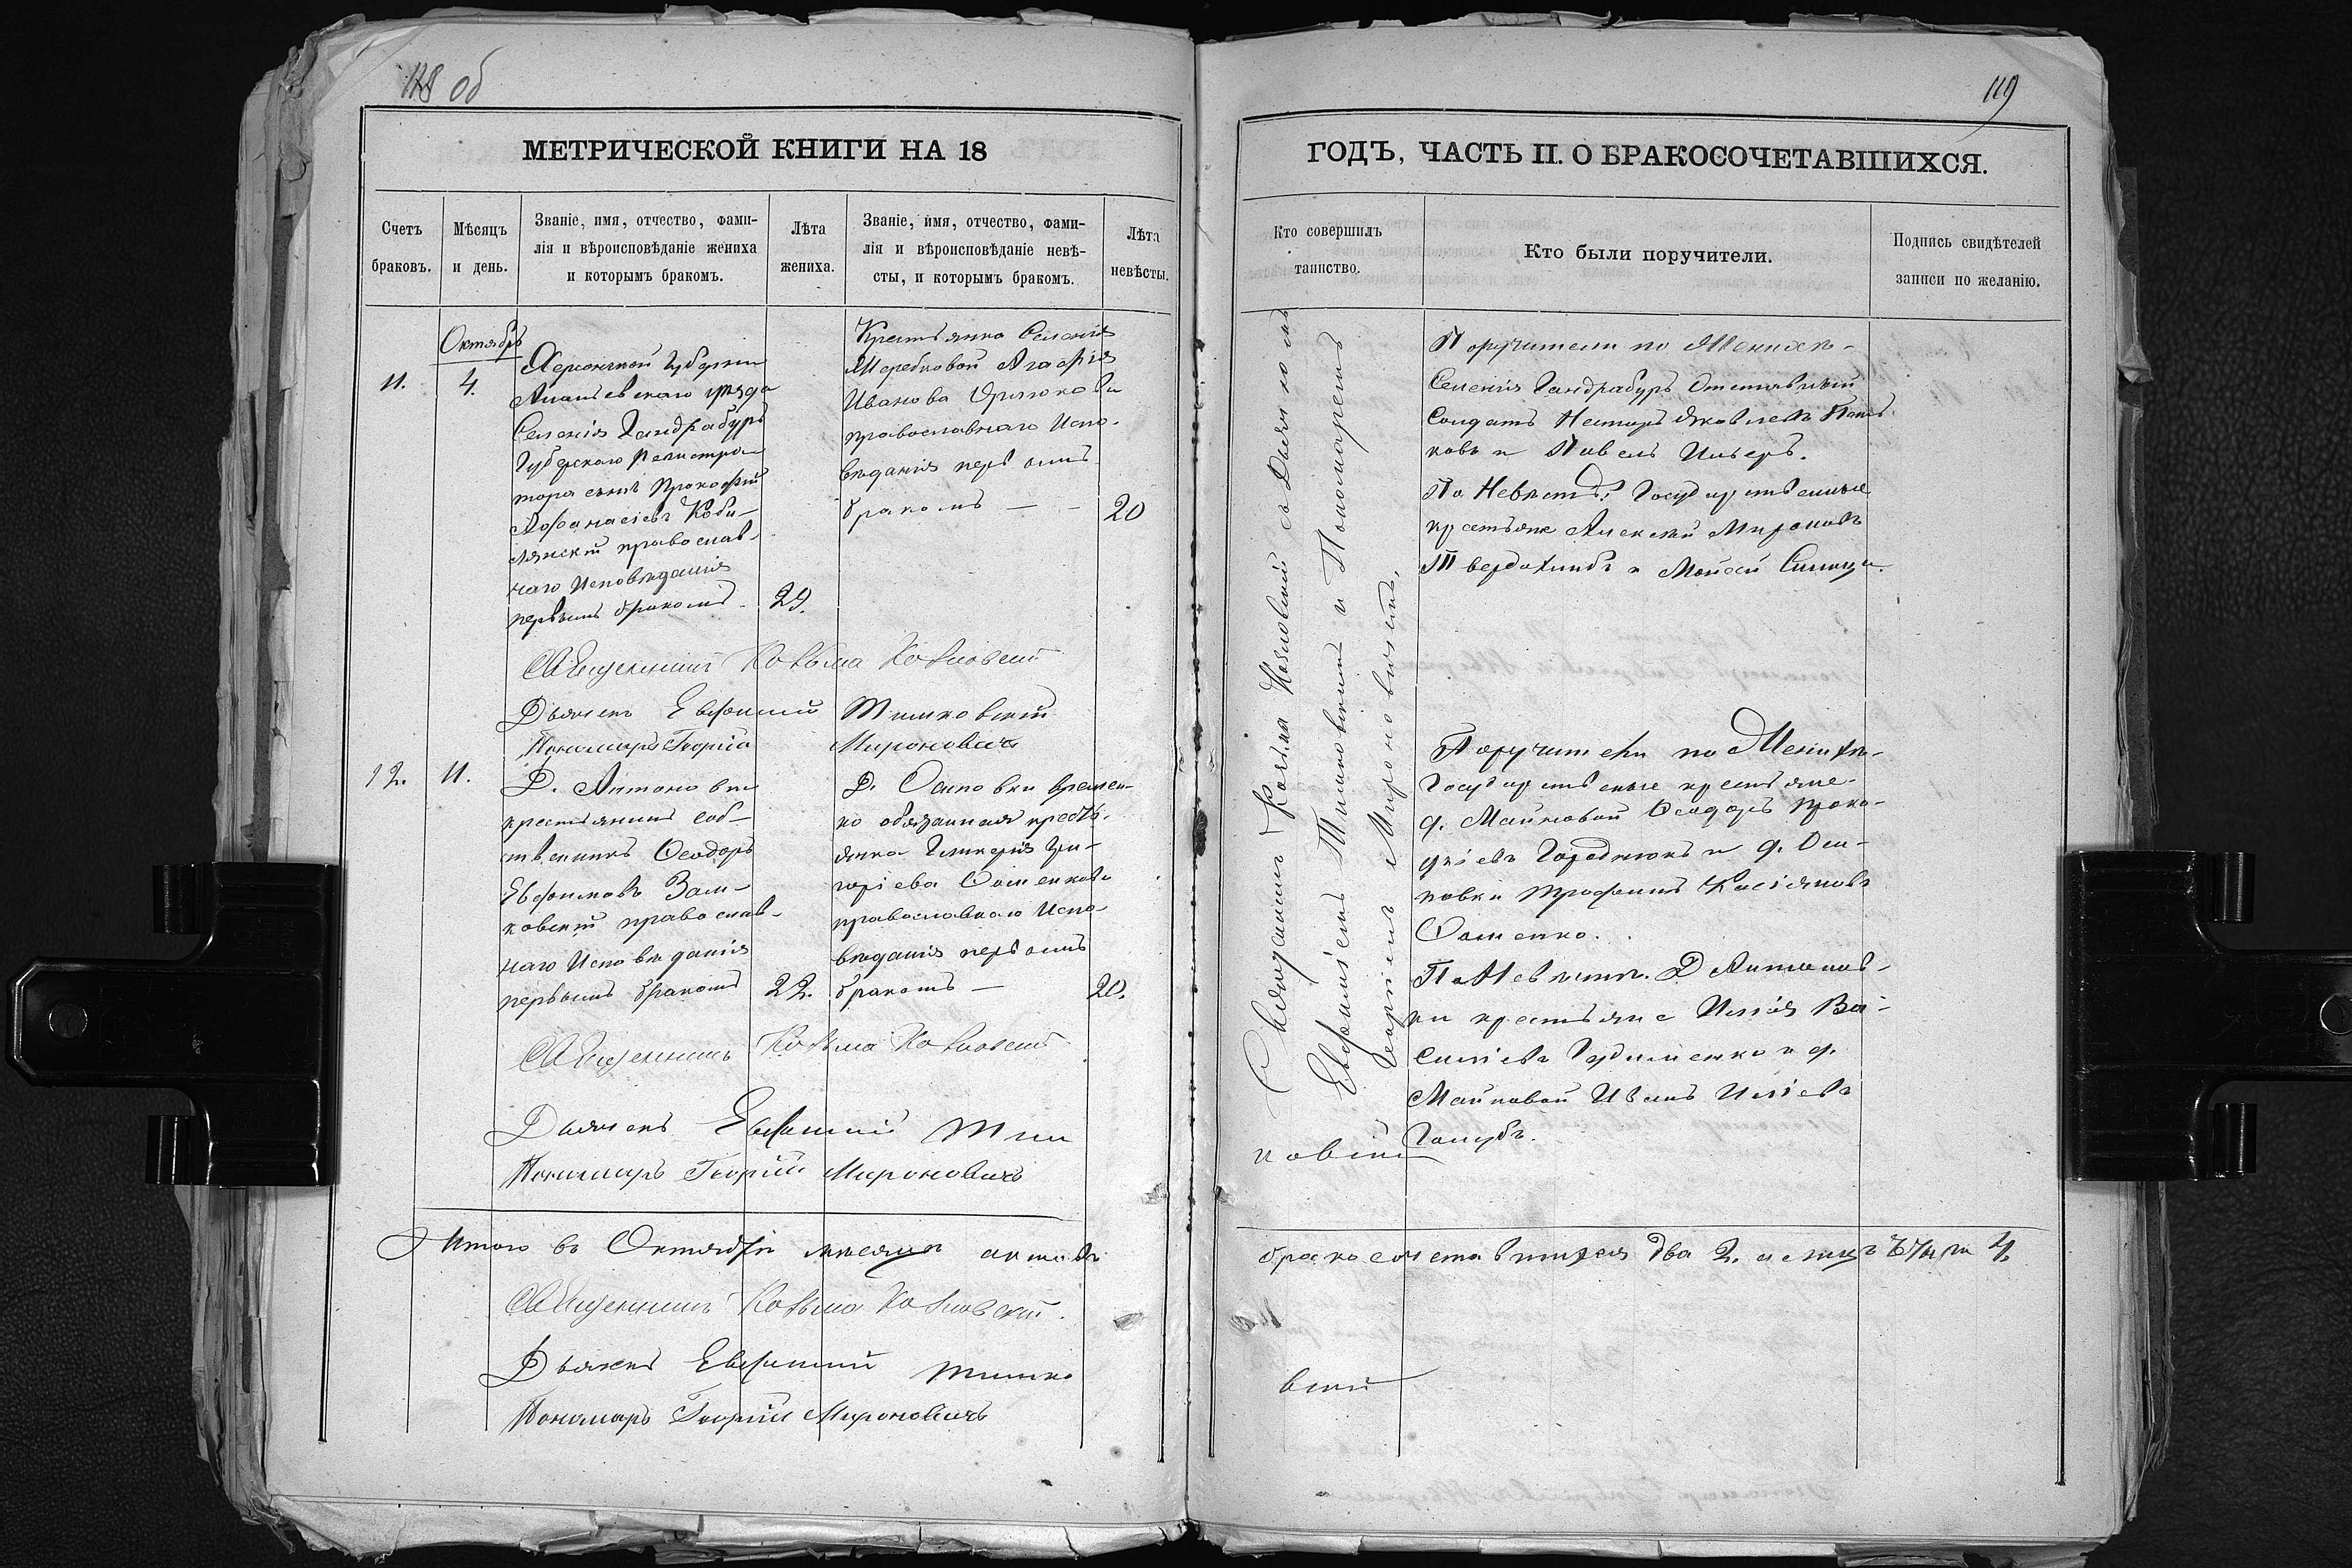 118 об
МЕТРИЧЕСКОЙ КНИГИ НА 18
Счетъ браковъ.
Мѣсяцъ и день.
Званіе, имя, отчество, фами-
лія и вѣроисповѣданіе жениха
и которымъ бракомъ.
Лѣта жениха.
Званіе, имя, отчество, фами-
лія и вѣроисповѣданіе невѣ-
сты, и которымъ бракомъ.
Лѣта невѣсты.
Октябрь
11.
4.
Херсонской Губерніи
Ананьевскаго уѣзда
Селенія Гандрабуръ
Губерскаго Регистра-
тора сынъ Прокофій
Афанасіевъ Коби-
лянскій православ-
наго Исповѣданія
первымъ бракомъ
29.
Крестьянка Селенія
Жеребковой Агафія
Иванова
православнаго Испо-
вѣданія первымъ
бракомъ — -
20
Священникъ Козьма Козловскій
Дьячекъ Евфимій Тимковскій
Пономарь Георгій Мироновичъ
12.
11.
Д. Антоновки
крестьянинъ соб-
ственникъ Ѳеодоръ
Евфимовъ Зам-
ковскій православ-
наго Исповѣданія
первымъ бракомъ
22.
Д. Осиповки времен-
но обязанная кресть-
янка Гликерія Гри-
горіева
православнаго Испо-
вѣданія первымъ
бракомъ —
20.
Священникъ Козьма Козловскій
Дьячекъ Евфимій Тим
Пономарь Георгій Мироновичъ
Итого въ Октябрѣ мѣсяцѣ актовъ
Священникъ Козьма Козловскій.
Дьячекъ Евфимій Тимко
Пономарь Георгій Мироновичъ
119
ГОДЪ, ЧАСТЬ II. О БРАКОСОЧЕТАВШИХСЯ.
Кто совершилъ таинство.
Кто были поручители.
Подпись свидѣтелей
записи по желанію.
Священникъ Козьма Козловскій съ Дьячкомъ
Евфиміемъ Тимковскимъ и Пономаремъ
Георгіемъ Мироновичемъ.
Поручители по Женихѣ-
Селенія Гандрабуръ Отставный
Солдатъ Несторъ Яковлевъ
и Павелъ
По Невѣстѣ: Государственные
крестьяне Алексѣй Мироновъ
Твердохлибъ и Моисей Синица.
Поручители по Женихѣ-
Государственые крестьяне-
д. Майновой Ѳеодоръ Проко-
фіевъ Городнюкъ и д. Оси-
повки Трофимъ Касіяновъ
По Невѣстѣ. Д Антонов-
ки крестьяне Илія Ва-
силіевъ и д.
Майновой Иванъ Иліевъ
Голубъ.
ковскій
бракосочетавшихся два 2. а лицъ четыри 4.
вскій